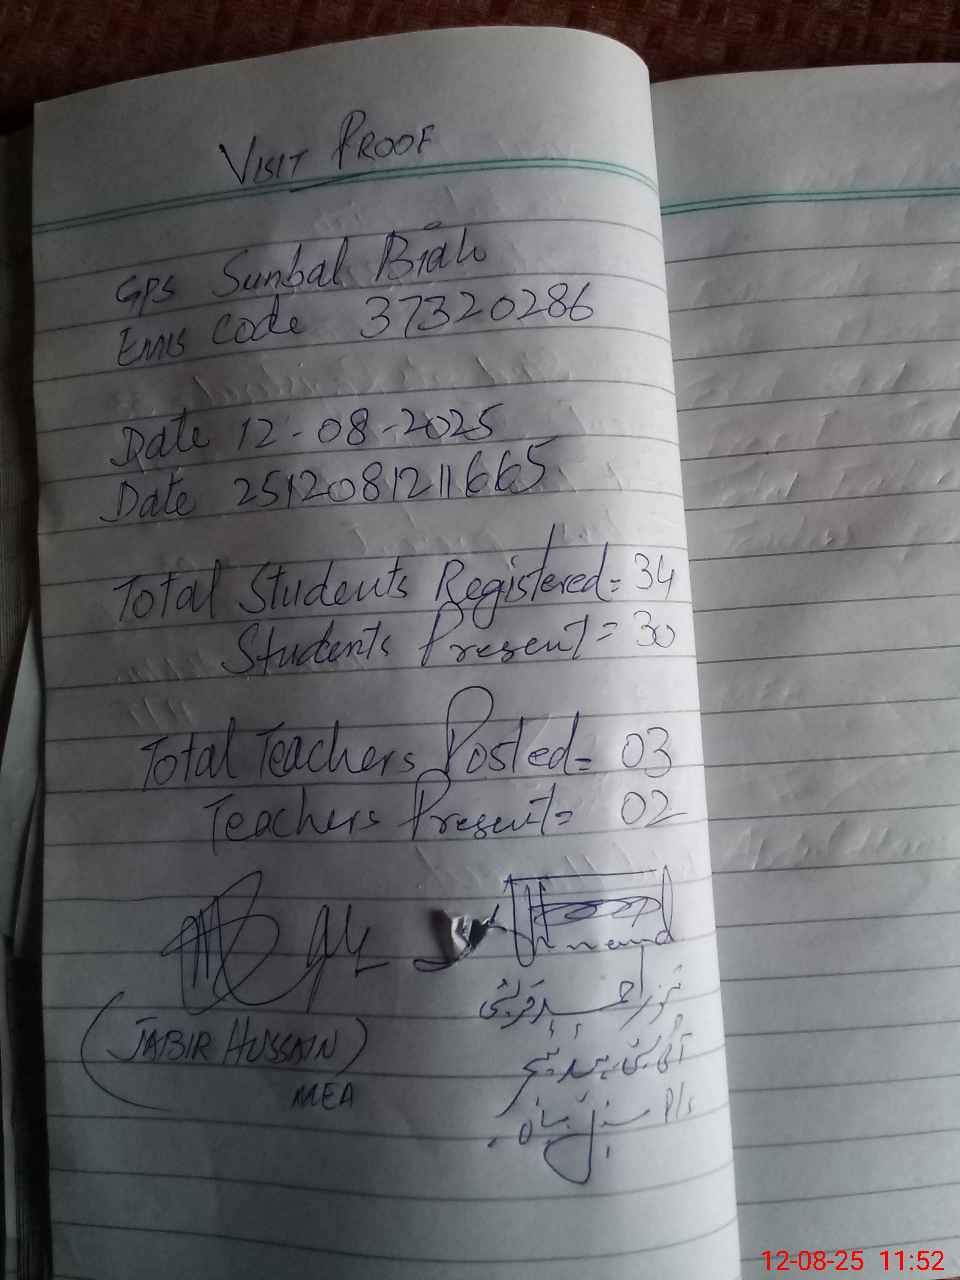 VISIT PROOF
GPS Sunbal Biah
EMIS Code 37320286
Date 12-08-2025
Date 2512081211665
Total Students Registered = 34
Students Present = 30
Total Teachers Posted = 03
Teachers Present = 02
(JABIR HUSSAIN)
MEA
P/s سنبل بیاہ
12-08-25 11:52